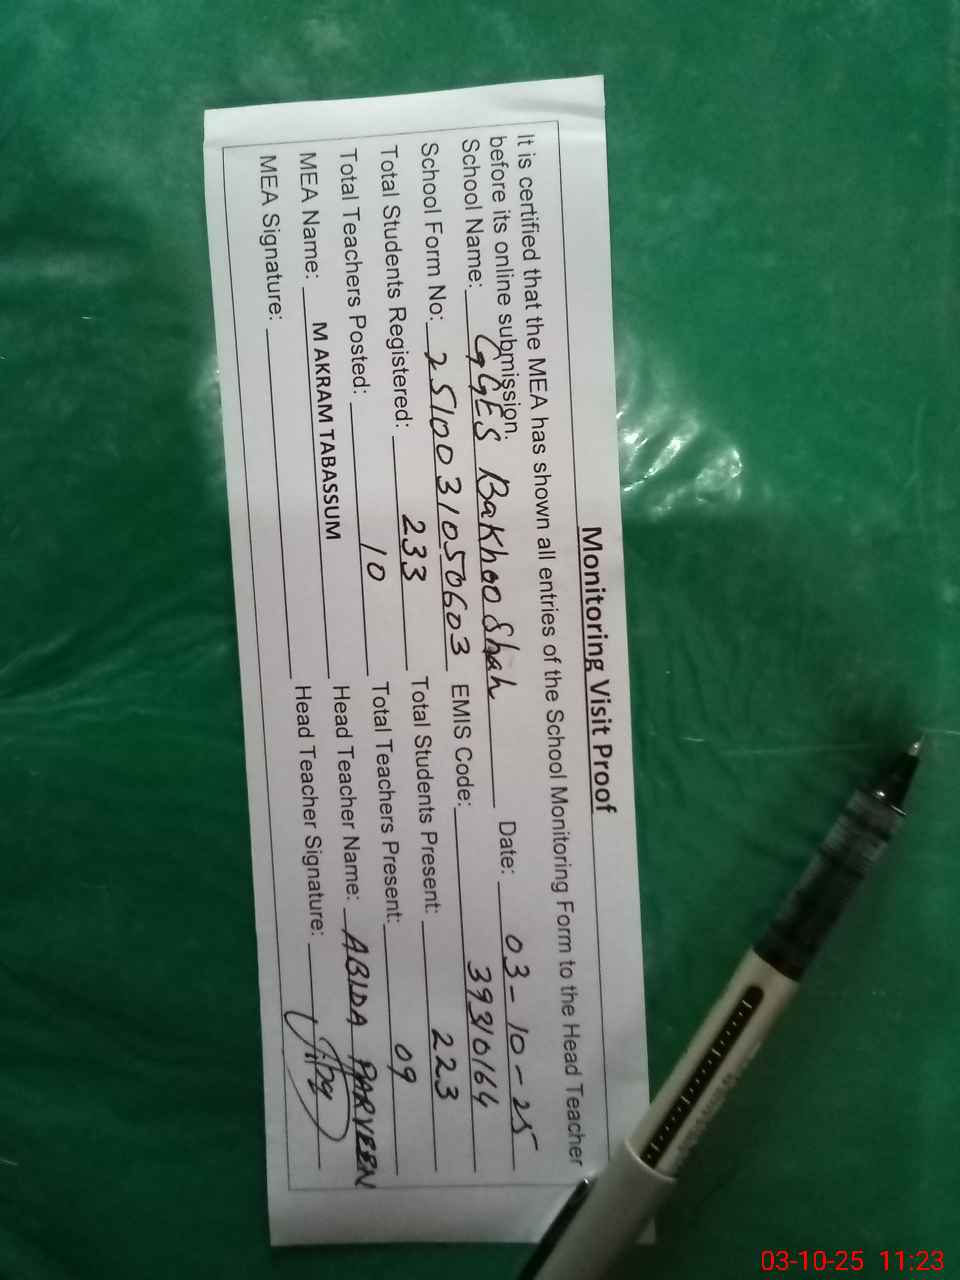 Monitoring Visit Proof
It is certified that the MEA has shown all entries of the School Monitoring Form to the Head Teacher
before its online submission.
School Name: GGES Bakhoo Shah Date: 03-10-25
School Form No: 2510031050603 EMIS Code: 39310164
Total Students Registered: 233 Total Students Present: 223
Total Teachers Posted: 10 Total Teachers Present: 09
MEA Name: M AKRAM TABASSUM Head Teacher Name: ABIDA PARVEEN
MEA Signature: Head Teacher Signature:
03-10-25 11:23